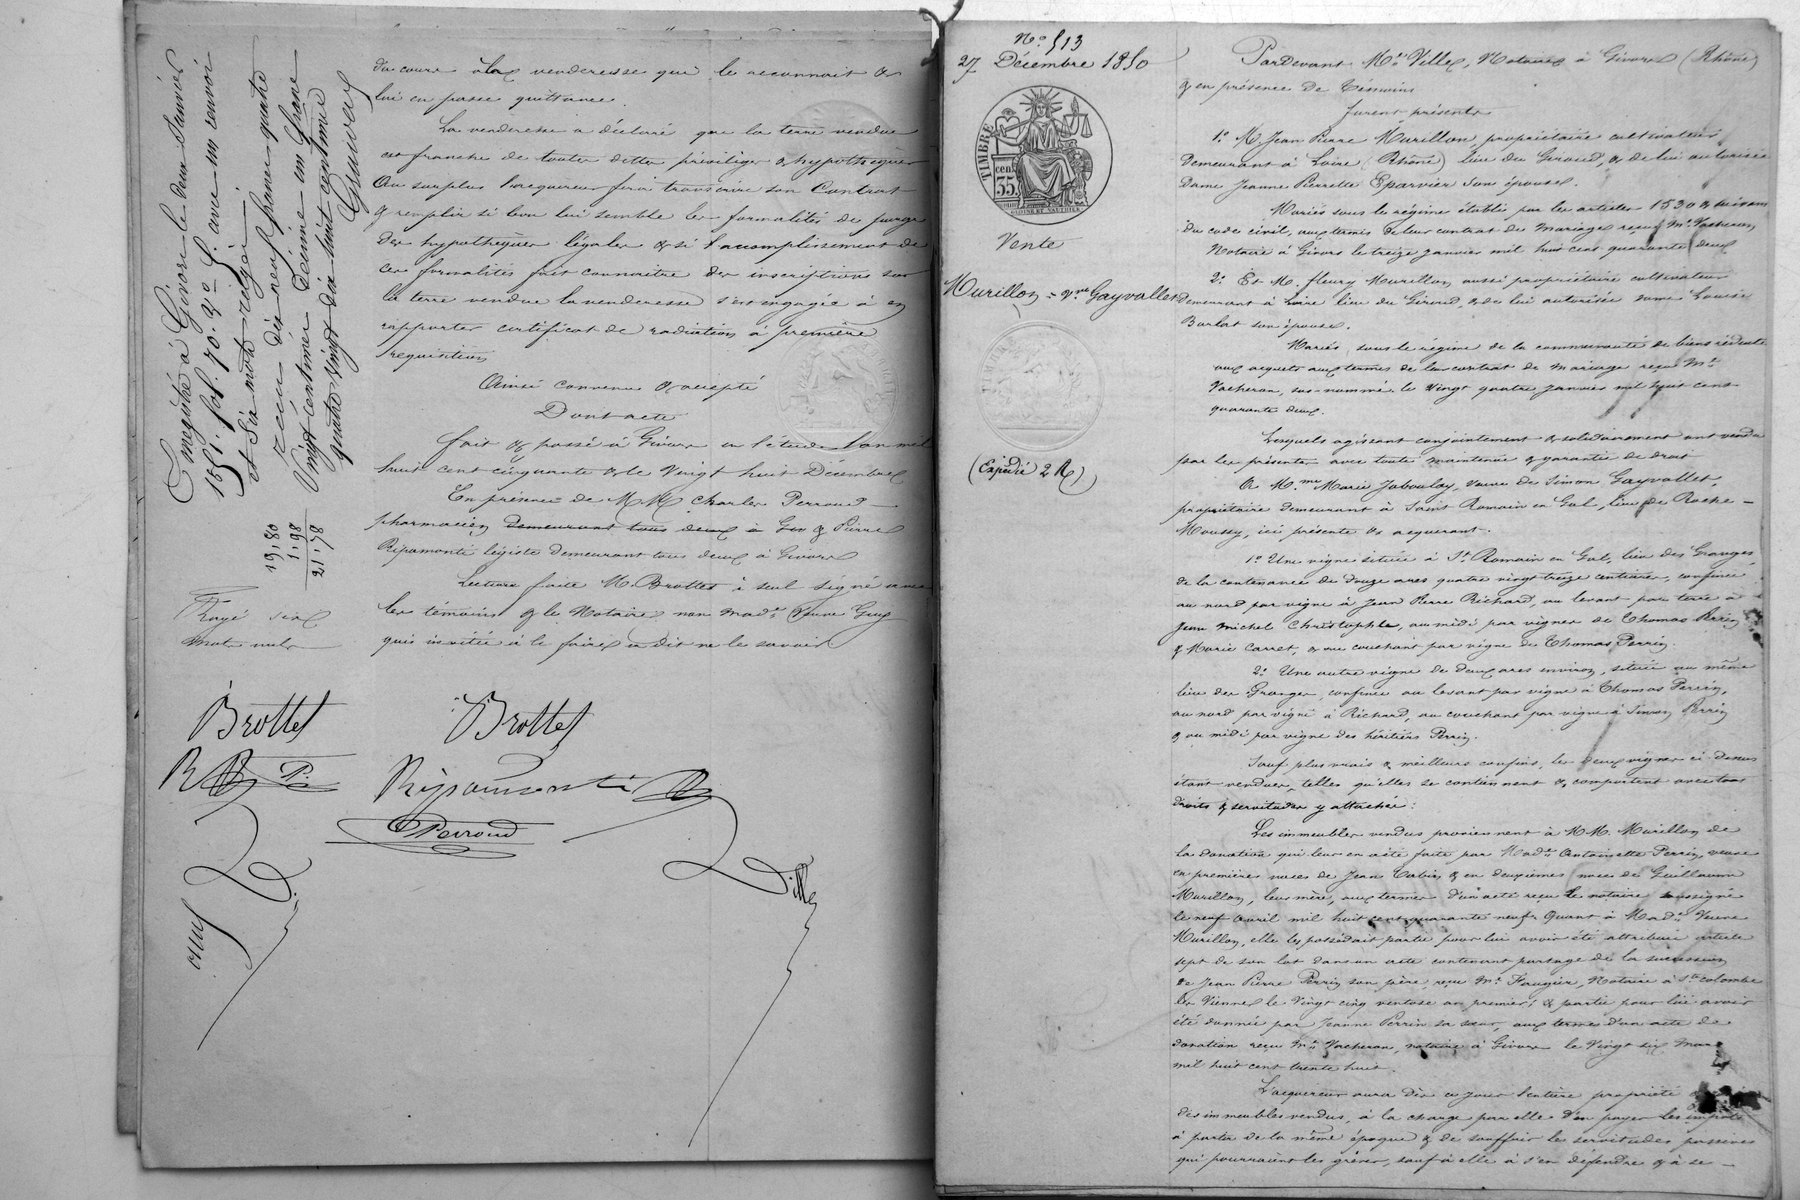 du cours à la venderesse qui le reconnait &
lui en passe quittance.
La venderesse a déclaré que la terre vendue
est franche de toute dette privilégiée & hypothéquaire
Au surplus l'acquéreur fera transcrire son Contrat
& remplir si bon lui semble les formalités de purge
des hypothèques légales & si l'accomplissement de
ces formalités fait connaitre des inscriptions sur
la terre vendue la venderesse s'est engagée à en
rapporter certificat de radiation à première
requisition
Ainsi convenu & accepté
Dont acte
fait & passé à Givors en l'étude l'an mil
huit cent cinquante & le Vingt huit Décembre
En présence de MM Charles Perroud
pharmacien demeurant tous deux à Giv & Pierre
Ripamonti légiste demeurant tous deux à Givors
Lecture faite M. Brottet a seul signé avec
les témoins & le Notaire non Mad.e Veuve Guy
qui invitée à le faire a dit ne le savoir
Enregistré à Givors le deux Janvier
1851. fol. 70. R° C. avec un renvoi
et Six mots rayés
reçu dix neuf francs quatre
Vingt centimes Décime un franc
quatre vingt dix huit centimes
19,80
1,98
21,78
Rayé six
mots nuls
Brottet
Brottet
R P.
Ripamonti
Perroud
Ville
N° 513
27 Décembre 1850
TIMBRE
cen. 35
Vente
Murillon = v.ve Gayvallet
(Expédié 2 R)
Pardevant M.e Ville, Notaire à Givors (Rhône)
& en présence de témoins
furent présents
1° M. Jean Pierre Murillon, propriétaire cultivateur
demeurant à Loire (Rhône) lieu du Giroud, & de lui autorisée
Dame Jeanne Pierrette Eparvier son épouse.
Mariés sous le régime établi par les articles 1530 & suivans
du code civil, aux termes de leur contrat de mariage reçu M.e Vacheron
Notaire à Givors le treize janvier mil huit cent quarante deux
2° Et M. fleury Murillon aussi propriétaire cultivateur
demeurant à Loire lieu du Giroud, & de lui autorisée dame Louise
Burlat son épouse.
Mariés sous le régime de la communauté de biens réduite
aux acquets aux termes de leur contrat de mariage reçu M.e
Vacheron, sus-nommé le vingt quatre janvier mil huit cent
quarante deux.
Lesquels agissant conjointement & solidairement ont vendu
par les présentes avec toute maintenue & garantie de droit
A M.me Marie Jaboulay, veuve de Simon Gayvallet,
propriétaire demeurant à Saint Romain en Gal, lieu de Roche-
Moussy, ici présente & acquerant.
1° Une vigne située à S.t Romain en Gal, lieu des Granges,
de la contenance de douze ares quatre vingt treize centiares, confinée
au nord par vigne à Jean Pierre Richard, au levant par terre à
Jean Michel Christophle, au midi par vignes de Thomas Perrin
& Marie Carret, & au couchant par vigne de Thomas Perrin.
2° Une autre vigne de deux ares environ, située au même
lieu des Granges, confinée au levant par vigne à Thomas Perrin,
au nord par vigne à Richard, au couchant par vigne à Simon Perrin
& au midi par vigne des héritiers Perrin.
Sauf plus vrais & meilleurs confins, les deux vignes ci-dessus
étant vendues, telles qu'elles se contiennent & comportent avec tous
droits & servitudes y attachés:
Les immeubles vendus proviennent à MM. Murillon de
la donation qui leur en a été faite par Mad.e Antoinette Perrin, veuve
en premières noces de Jean & en deuxièmes noces de Guillaume
Murillon, leur mère, aux termes d'un acte reçu le notaire soussigné
le neuf avril mil huit cent quarante neuf. Quant à Mad.e Veuve
Murillon, elle les possédait partie pour lui avoir été attribué article
sept de son lot dans un acte contenant partage de la succession
de Jean Pierre Perrin son père, reçu M.e Faugier, Notaire à S.te colombe
les Vienne le Vingt cinq ventose an premier; & partie pour lui avoir
été donnée par Jeanne Perrin sa soeur, aux termes d'un acte de
donation reçu M.e Vacheron, notaire à Givors le Vingt six Mars
mil huit cent trente huit.
L'acquéreur aura dès ce jour l'entière propriété
des immeubles vendus, à la charge par elle d'en payer les impôts
à partir de la même époque & de souffrir les servitudes passives
qui pourraient les grever, sauf à elle à s'en défendre & à se